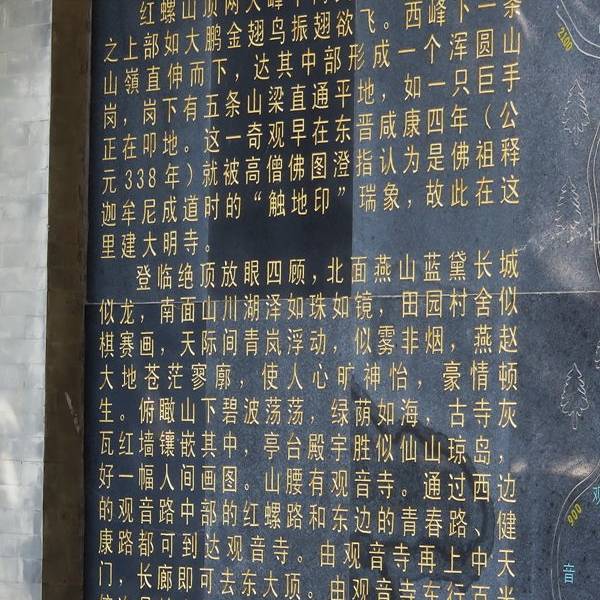 红螺山顶两大峰
飞。西峰下一条
之上部如大鹏金翅乌振翅欲
山嶺直伸而下，达其中部形成一个浑圆山
岗，岗下有五条山梁直通平地，如一只巨手
正在叩地。这一奇观早在东晋咸康四年（公
元338年）就被高僧佛图澄指认为是佛祖释
迦牟尼成道时的“触地印”瑞象，故此在这
里建大明寺。
登临绝顶放眼四顾，北面燕山蓝黛长城
似龙，南面山川湖泽如珠如镜，田园村舍似
棋赛画，天际间青岚浮动，似雾非烟，燕赵
大地苍茫寥廓，使人心旷神怡，豪情顿
生。俯瞰山下碧波荡荡，绿荫如海，古寺灰
瓦红墙镶嵌其中，亭台殿宇胜似仙山琼岛，
好一幅人间画图。山腰有观音寺。通过西边
的观音路中部的红螺路和东边的青春路、健
康路都可到达观音寺。由观音寺再上中天
门，长廊即可去东大顶。由观音寺东行百米
2100
900
观
音